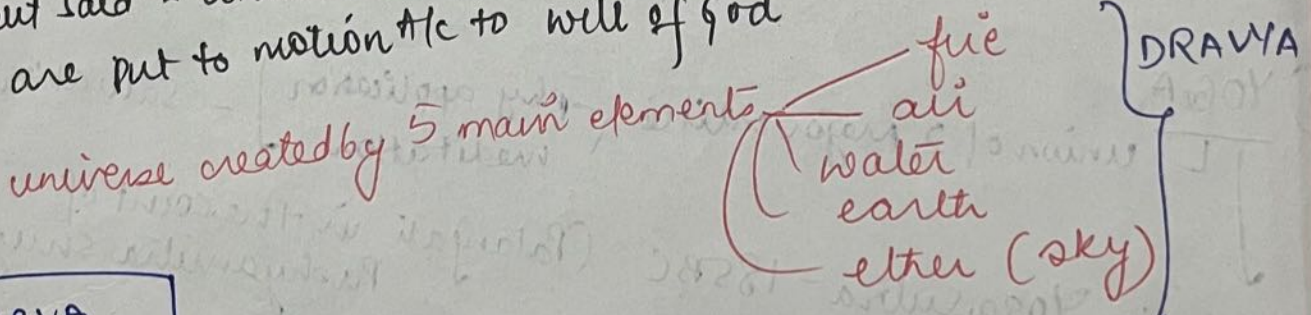 are put to motion A/c to will of god
universe created by 5 main elements
fire
air
water
earth
ether (sky)
DRAVYA